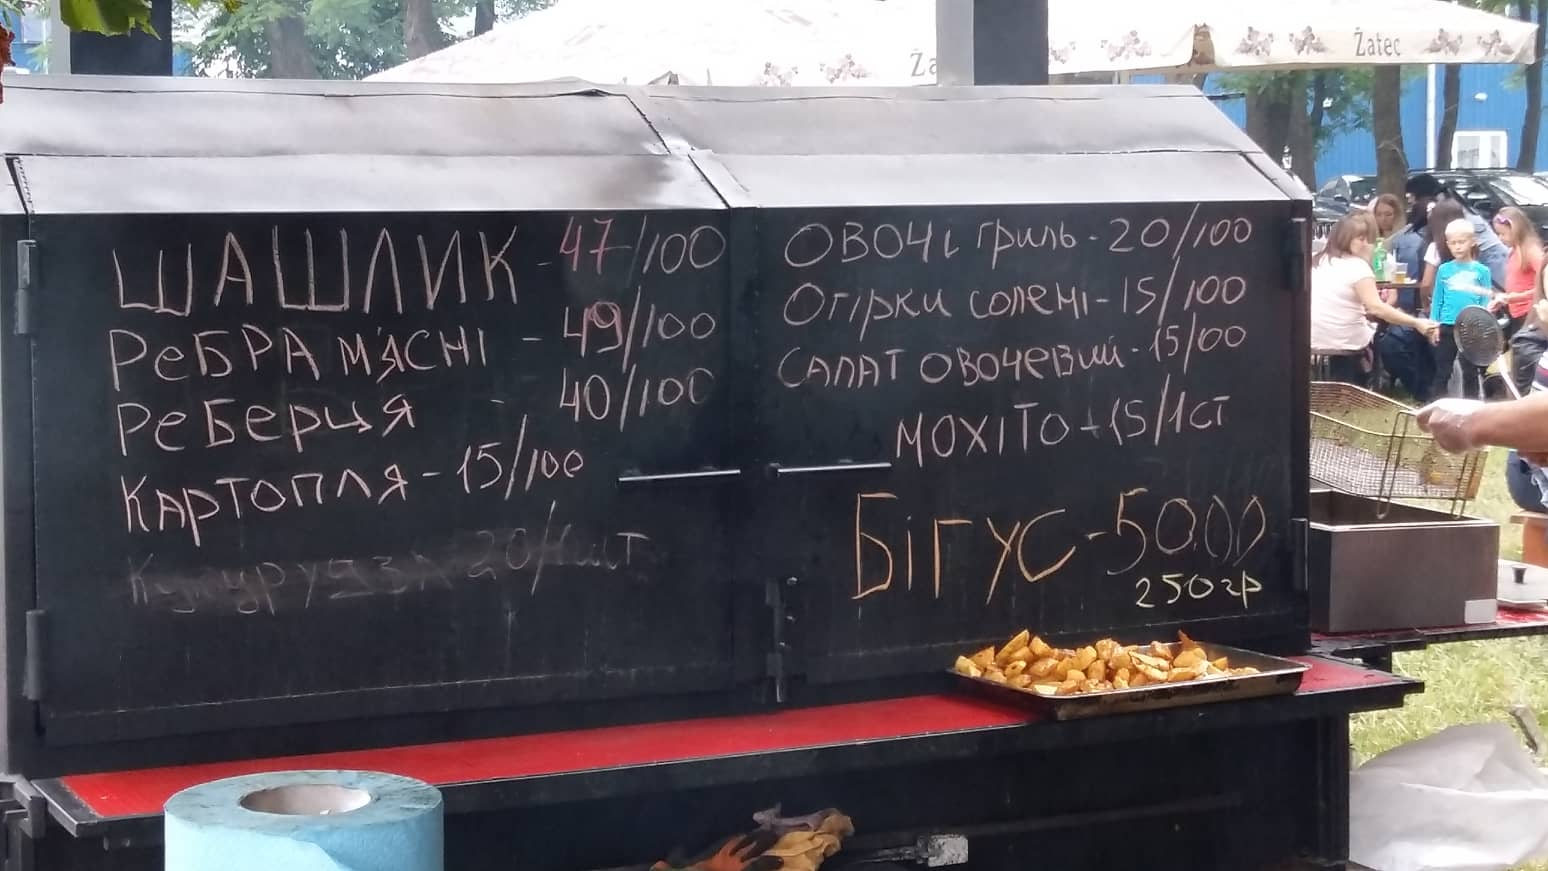 Žatec
ШАШЛИК - 47/100
РеБРА М'ЯСНІ - 49/100
РеБерця - 40/100
КАРТОПЛЯ - 15/100
20/1шт
ОВОЧі гриль - 20/100
Огірки солені - 15/100
САЛАТ ОВОЧевий - 15/00
МОХІТО - 15/1СТ
БІГУС - 50.00
250гр